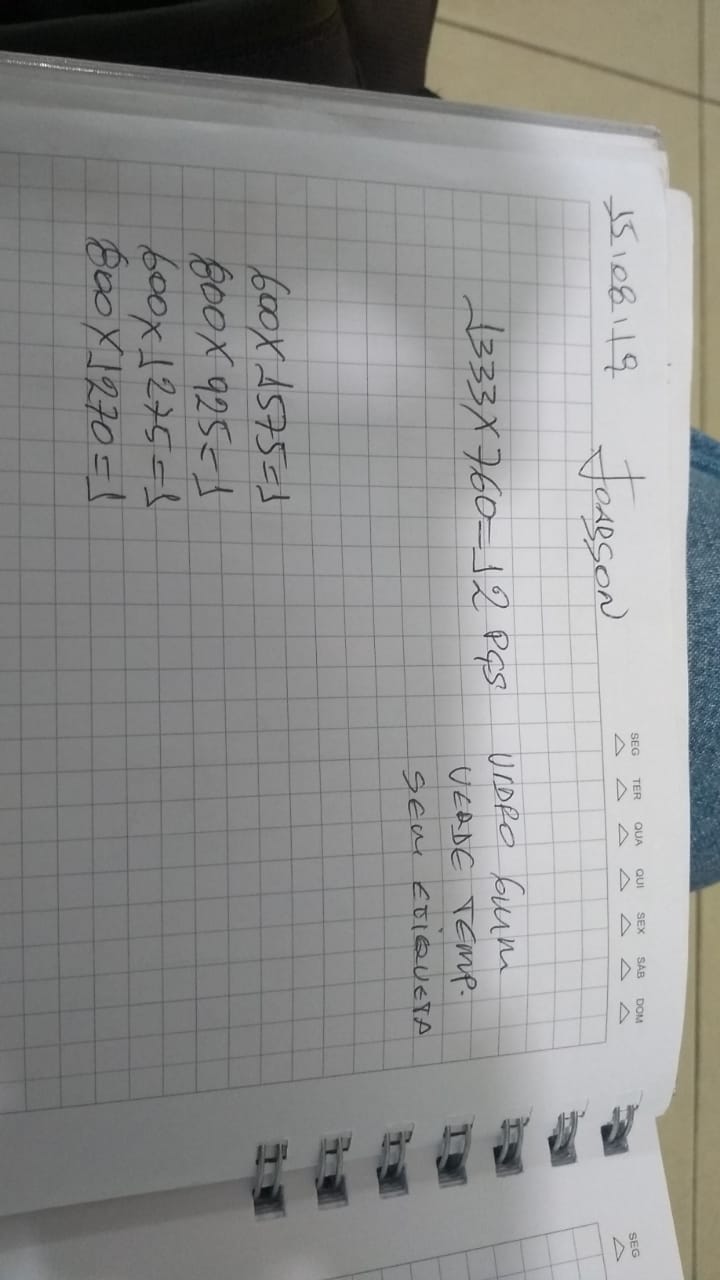 15.08.19 JOABSON
SEG TER QUA QUI SEX SÁB DOM
1333X760=12 PÇS VIDRO 6mm
VERDE TEMP.
SEM ETIQUETA
600X1575=1
800X925=1
600X1275=1
800X1270=1
SEG